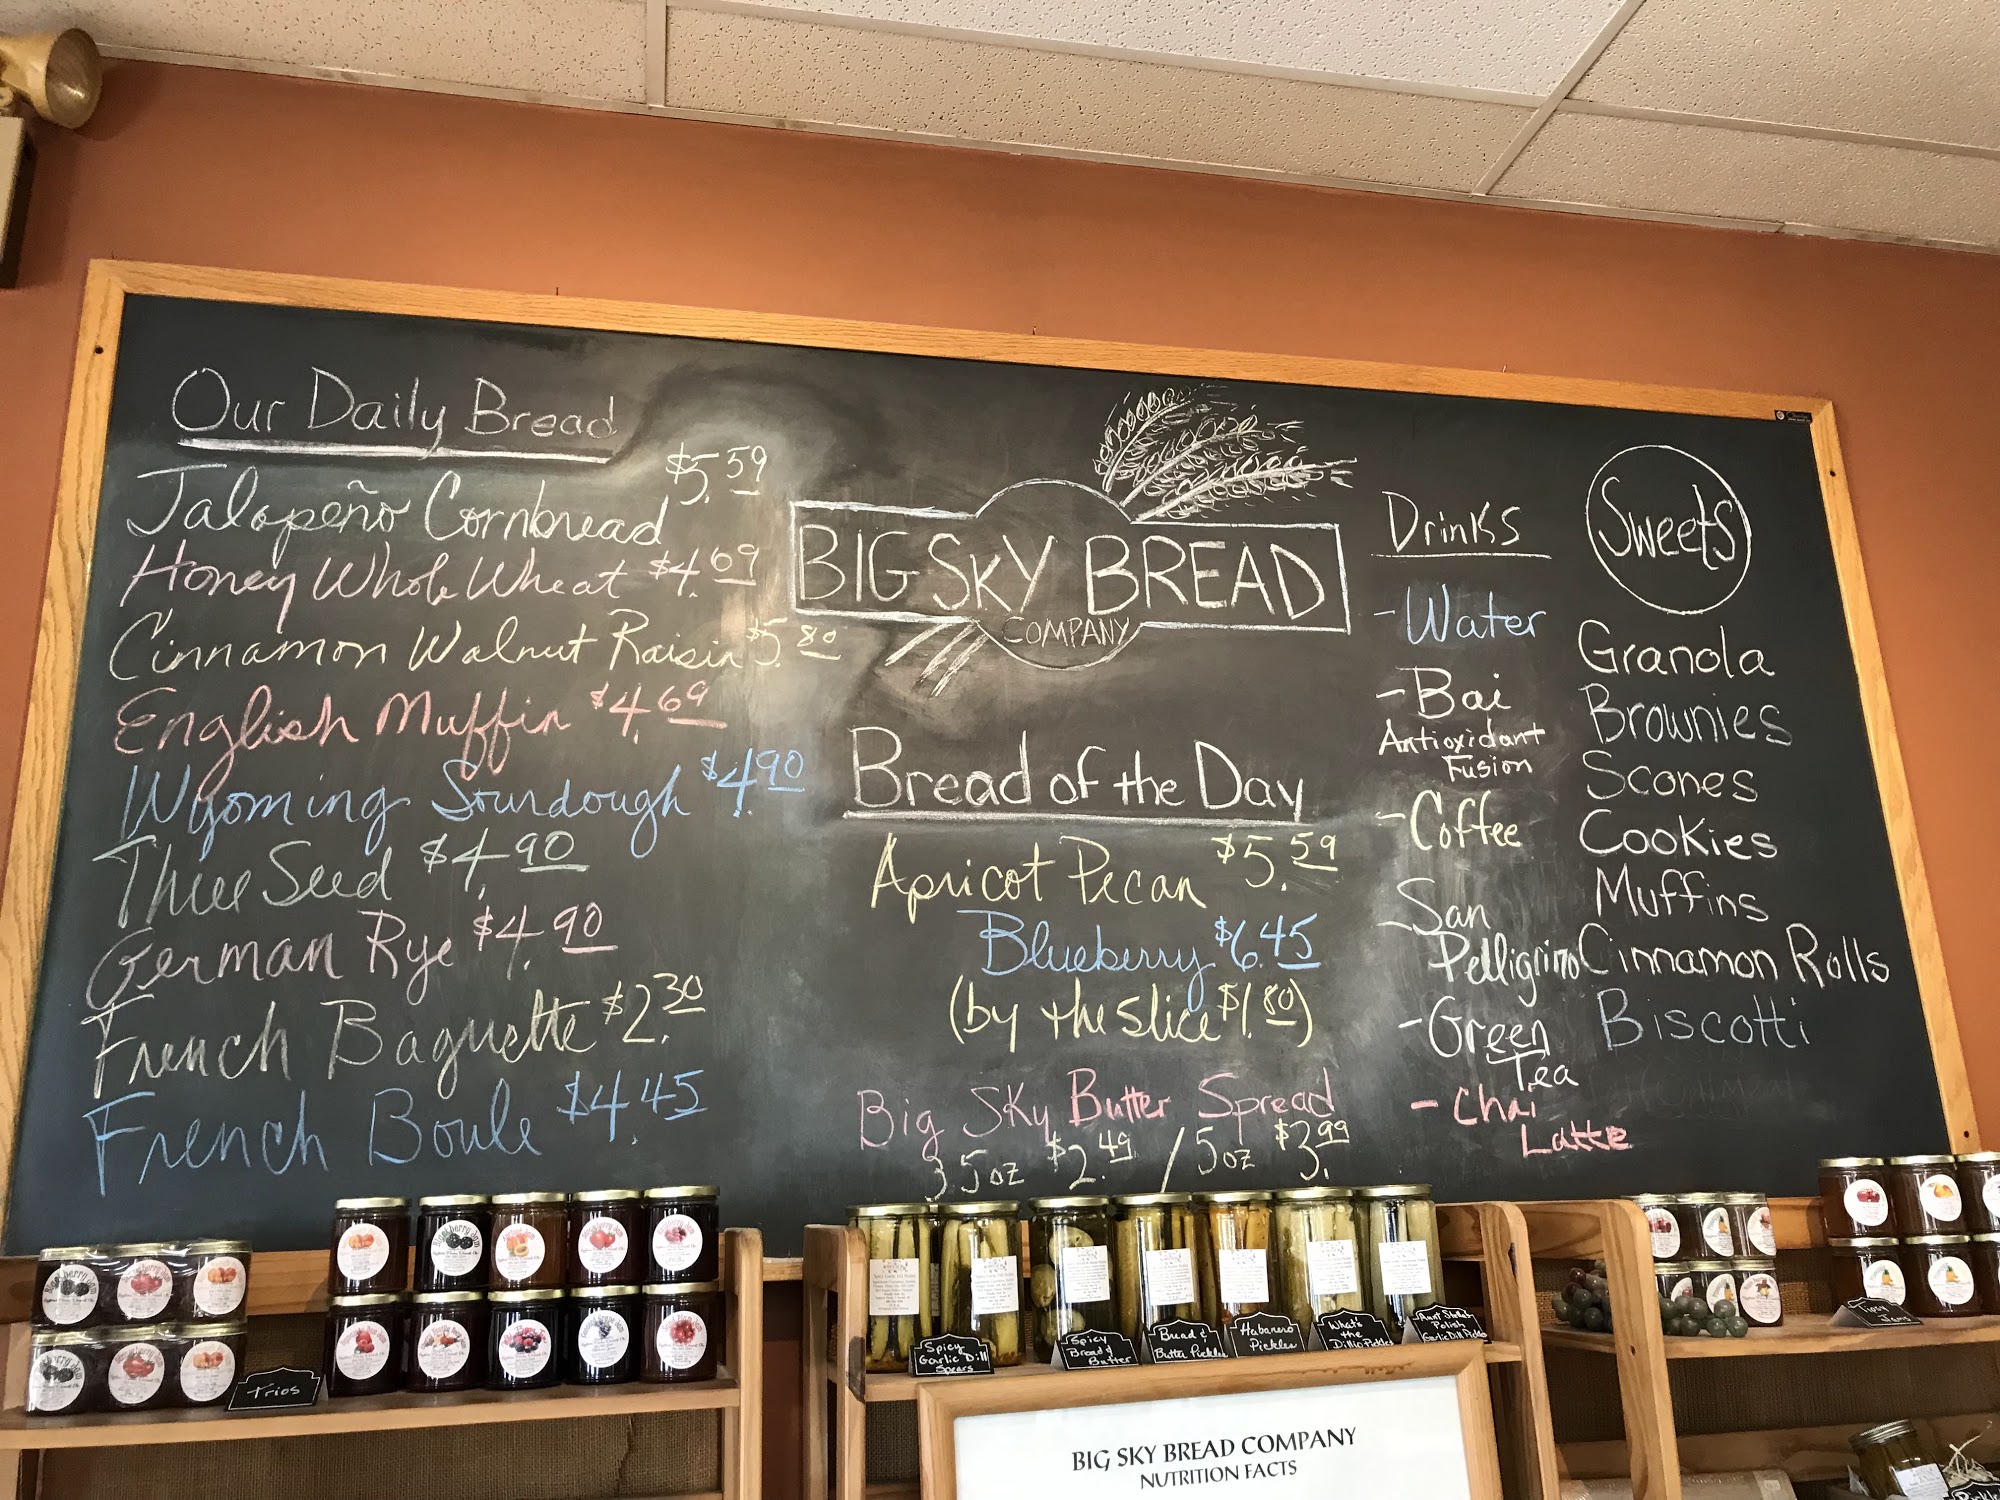 Our Daily Bread
Jalapeño Cornbread $5.59
Honey Whole Wheat $4.69
Cinnamon Walnut Raisin $5.80
English Muffin $4.69
Wyoming Sourdough $4.90
Three Seed $4.90
German Rye $4.90
French Baguette $2.30
French Boule $4.45
BIG SKY BREAD
COMPANY
Bread of the Day
Apricot Pecan $5.59
Blueberry $6.45
(by the slice $1.80)
Big Sky Butter Spread
3.5oz $2.49 / 5oz $3.99
Drinks
- Water
- Bai
Antioxidant
Fusion
- Coffee
- San
Pelligrino
- Green
Tea
- Chai
Latte
Sweets
Granola
Brownies
Scones
Cookies
Muffins
Cinnamon Rolls
Biscotti
Trios
Spicy
Garlic Dill
Spears
Spicy
Bread &
Butter
Bread &
Butter Pickles
Habanero
Pickles
What's
the
Dillio Pickles
Polish
Garlic Dill Pickles
Tipsy
Jams
BIG SKY BREAD COMPANY
NUTRITION FACTS